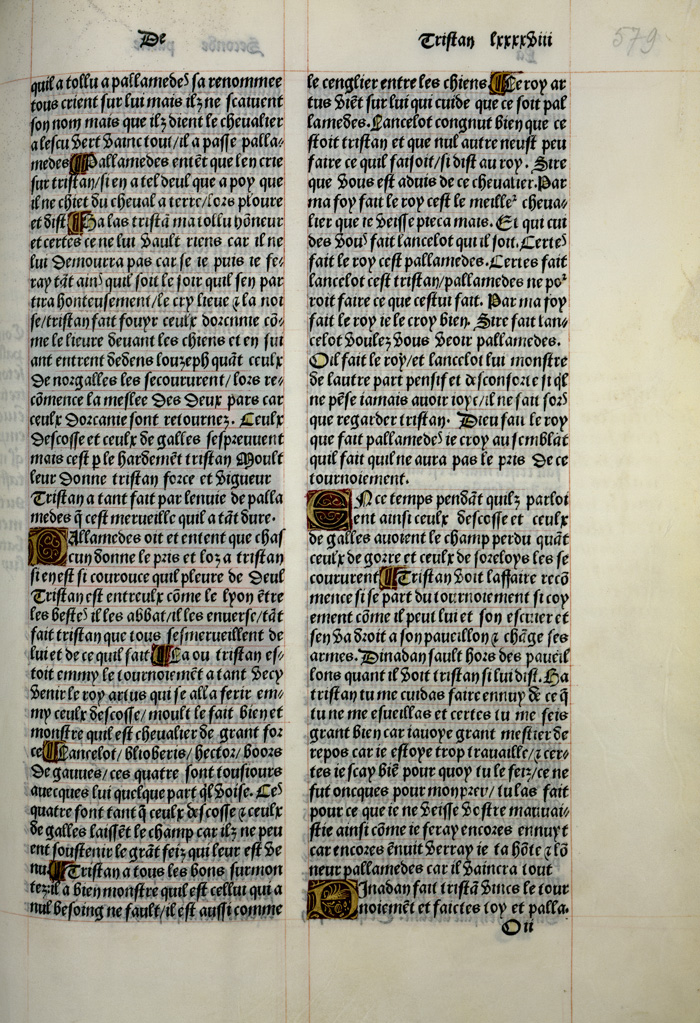 De
Tristan lxxxxviii
579
quil a tollu a pallamedes sa renommee
tous crient sur lui mais ilz ne scaiuent
son nom mais que ilz dient le cheualier
a lescu vert vainc tout/il a passe palla-
medes Pallamedes entēt que len crie
sur tristan/si en a tel deul que a poy que
il ne chiet du cheual a terre/lors ploure
et dist Ha las tristā ma tollu hōneur
et certes ce ne lui vault riens car il ne
lui demourra pas car se ie puis ie fe-
ray tāt ains quil soit le soir quil sen par
tira honteusement/le cry lieue ⁊ la noi
se/tristan fait fouyr ceulx dorcanie cō-
me le lieure deuant les chiens et en sui
ant entrent dedens louzeph quāt ceulx
de norgalles les secoururent/lors re-
cōmence la meslee des deux pars car
ceulx dorcanie sont retournez. Ceulx
descosse et ceulx de galles sespreuuent
mais cest p le hardemēt tristan Moult
leur donne tristan force et vigueur
Tristan a tant fait par lenuie de palla
medes q̄ cest merueille quil a tāt dure.
Pallamedes oit et entent que chas
cun donne le pris et loz a tristan
si en est si courouce quil pleure de deul
Tristan est entreulx cōme le lyon ētre
les bestes il les abbat/il les enuerse/tāt
fait tristan que tous sesmerueillent de
lui et de ce quil fait La ou tristan es-
toit emmy le tournoiemēt a tant vecy
venir le roy artus qui se alla ferir em-
my ceulx descosse/moult le fait bien et
monstre quil est cheualier de grant for
ce Lancelot/blioberis/hector/boors
de gauues/ces quatre sont tousiours
auecques lui quelque part ql voise. Ces
quatre font tant q̄ ceulx descosse ⁊ ceulx
de galles laissēt le champ car ilz ne peu
ent soustenir le grāt feiz qui leur est ve
nu Tristan a tous les bons surmon
tez:il a bien monstre quil est cellui qui a
nul besoing ne fault/il est aussi comme
le cenglier entre les chiens. Le roy ar
tus viēt sur lui qui cuide que ce soit pal
lamedes. Lancelot congnut bien que ce
stoit tristan et que nul autre neust peu
faire ce quil faisoit/si dist au roy. Sire
que vous est aduis de ce cheualier. Par
ma foy fait le roy cest le meiller cheua-
lier que ie veisse pieca mais. Et qui cui
des vous fait lancelot qui il soit. Certes
fait le roy cest pallamedes. Certes fait
lancelot cest tristan/pallamedes ne por
roit faire ce que cestui fait. Par ma foy
fait le roy ie le croy bien. Sire fait lan-
celot voulez vous veoir pallamedes.
Oil fait le roy/et lancelot lui monstre
de lautre part pensif et desconforte si ql
ne pēse iamais auoir ioye/il ne fait fors
que regarder tristan. Dieu fait le roy
que fait pallamedes ie croy au semblāt
quil fait quil ne aura pas le pris de ce
tournoiement.
EN ce temps pendāt quilz parloi
ent ainsi ceulx descosse et ceulx
de galles auoient le champ perdu quāt
ceulx de gorre et ceulx de soreloys les se
coururent Tristan voit laffaire recō
mence si se part du tournoiement si coy
ement cōme il peut lui et son escuier et
sen va droit a son paueillon ⁊ chāge ses
armes. Dinadan sault hors des paueil
lons quant il voit tristan si lui dist. Ha
tristan tu me cuidas faire ennuy de ce q̄
tu ne me esueillas et certes tu me feis
grant bien car iauoye grant mestier de
repos car ie estoye trop trauaille/⁊ cer-
tes ie scay biē pour quoy tu le feiz/ce ne
fut oncques pour mon preu/tu las fait
pour ce que ie ne veisse vostre mauuai-
stie ainsi cōme ie feray encores ennuyt
car encores ēnuit verray ie ta hōte ⁊ lō
neur pallamedes car il vaincra tout
Dinadan fait tristā vines le tour
noiemēt et faictes ioy et palla.
O ii